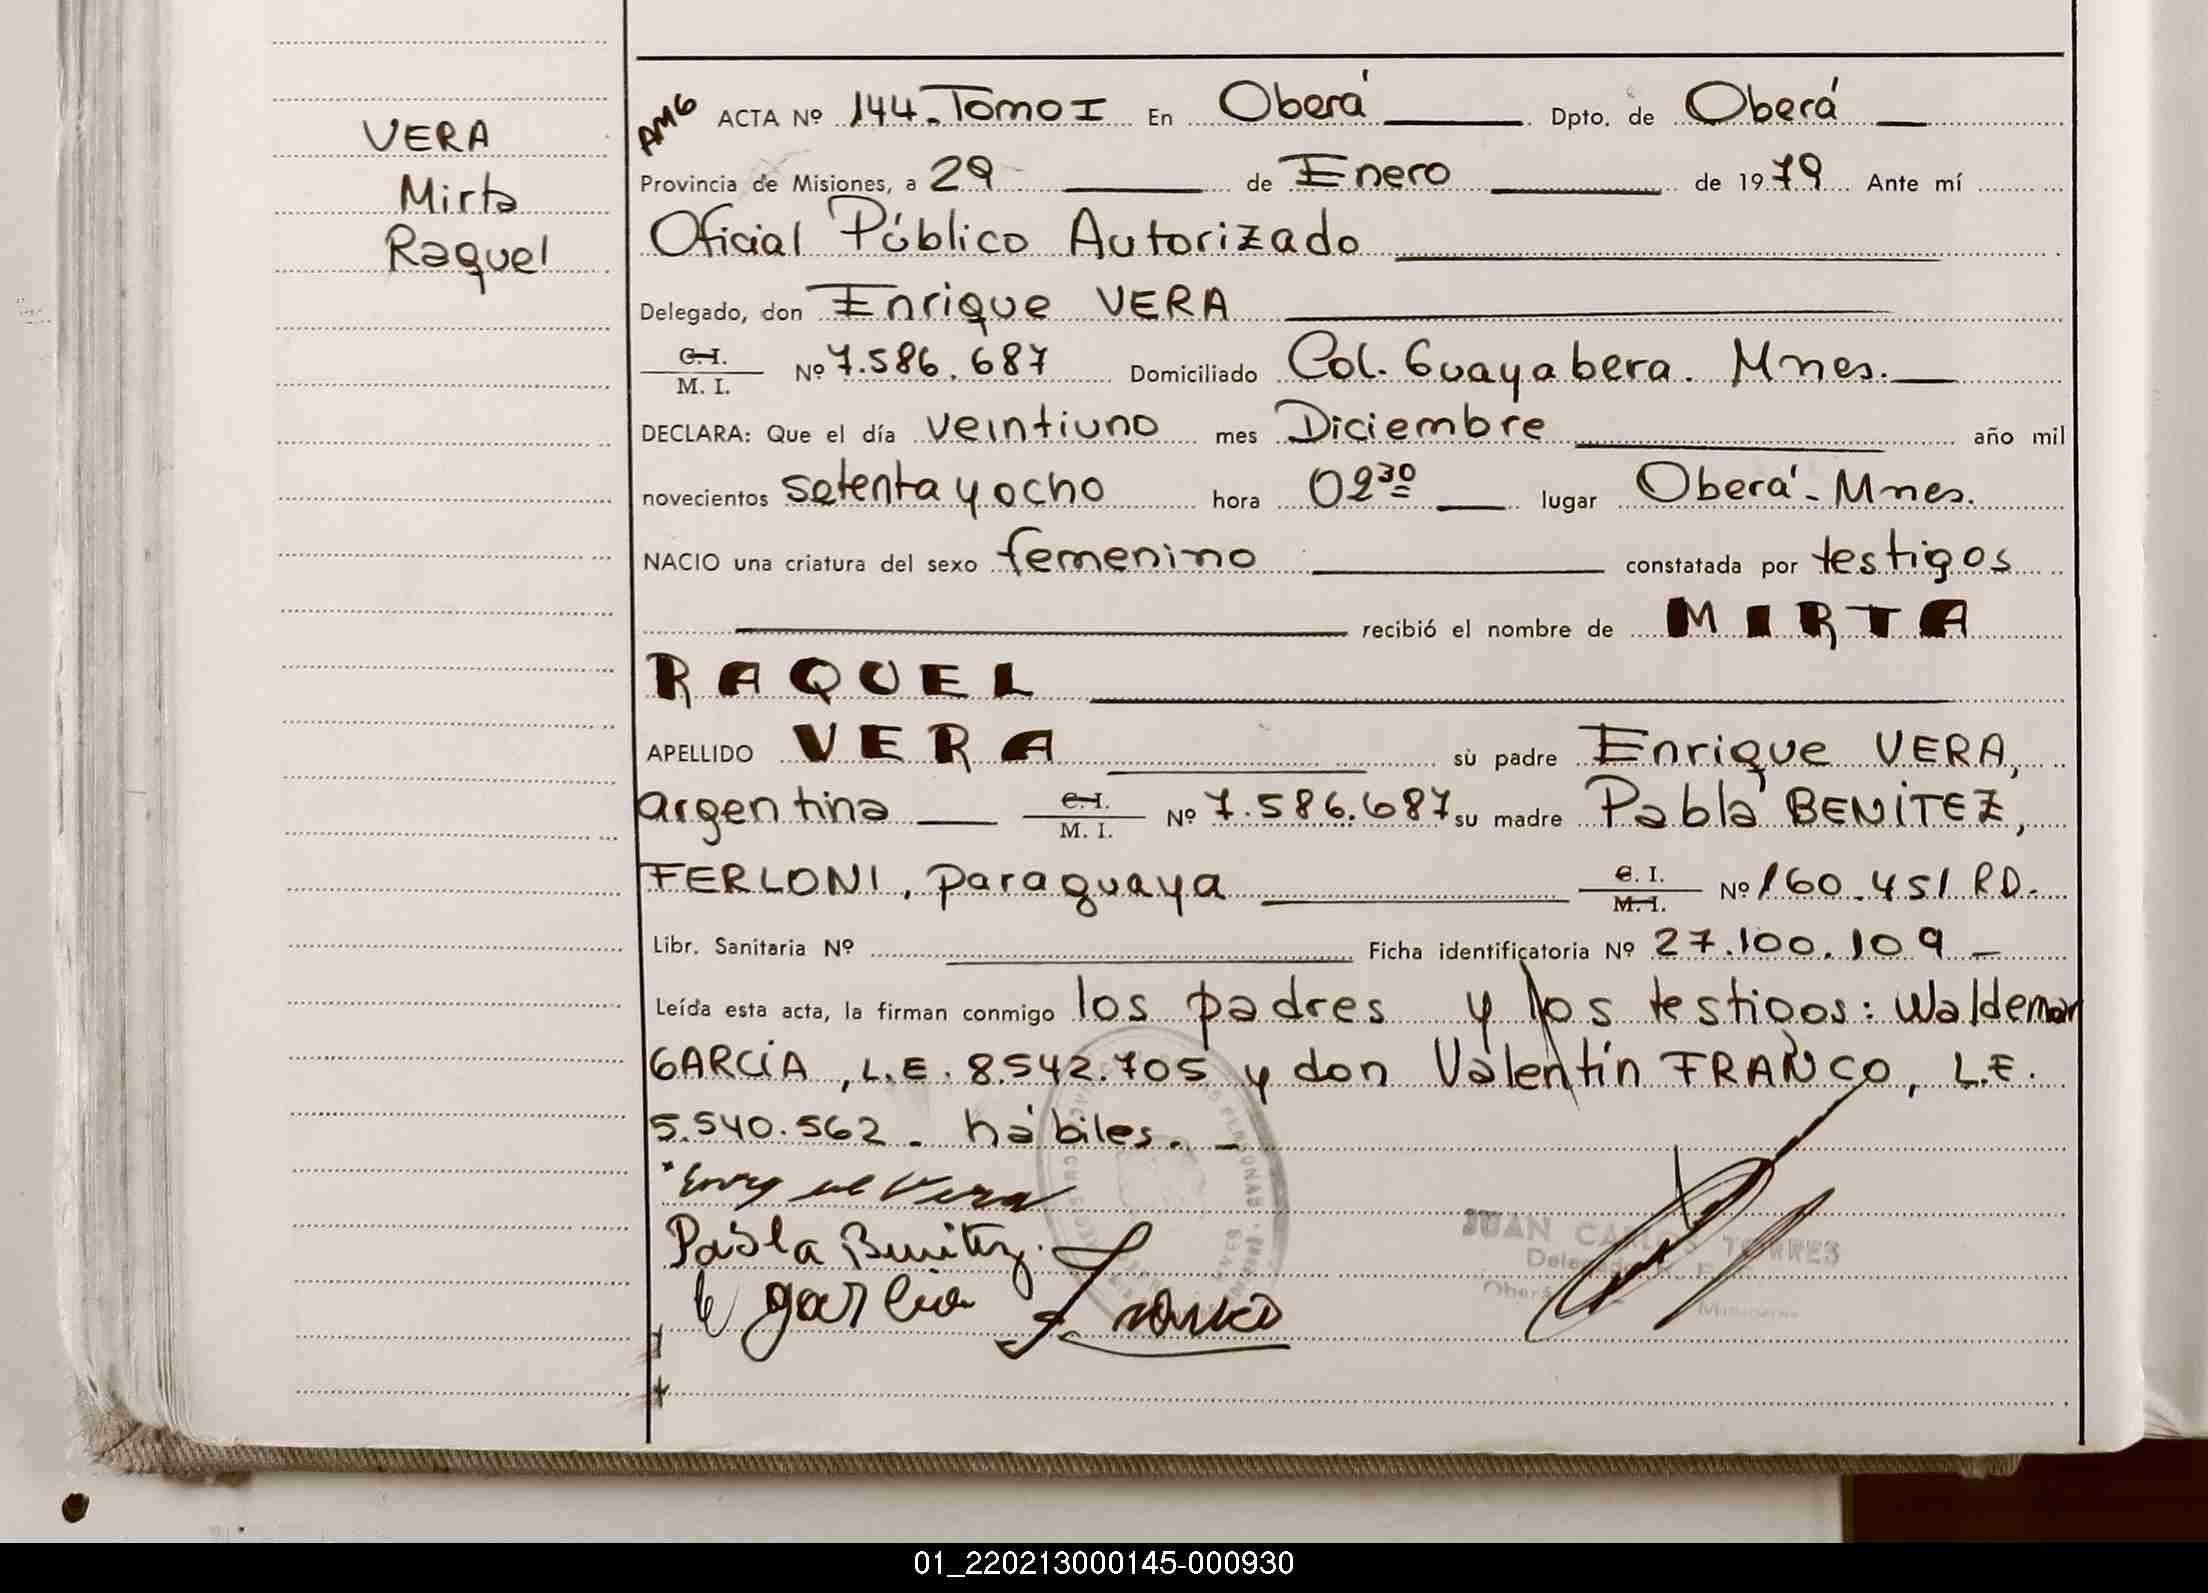 VERA
Mirta
Raquel
AMG ACTA Nº 144. Tomo I En Oberá Dpto. de Oberá
Provincia de Misiones, a 29 de Enero de 1979 Ante mí
Oficial Público Autorizado
Delegado, don Enrique VERA
C.I.
M. I. Nº 7.586.687 Domiciliado Col. Guayabera. Mnes.
DECLARA: Que el día veintiuno mes Diciembre año mil
novecientos setenta y ocho hora 02 30 lugar Oberá - Mnes.
NACIO una criatura del sexo femenino constatada por testigos
recibió el nombre de MIRTA
RAQUEL
APELLIDO VERA su padre Enrique VERA,
argentina C.I. M. I. Nº 7.586.687 su madre Pabla BENÍTEZ,
FERLONI, paraguaya C. I. M. I. Nº 160.451 R.D.
Libr. Sanitaria Nº Ficha identificatoria Nº 27.100.109 -
Leída esta acta, la firman conmigo los padres y los testigos: Waldemar
GARCÍA, L.E. 8.542.705 y don Valentín FRANCO, L.E.
5.540.562 - hábiles. -
Enrique Vera
Pabla Benitez.
W garcia Franco
JUAN CARLOS TORRES
Oberá Misiones
01_220213000145-000930